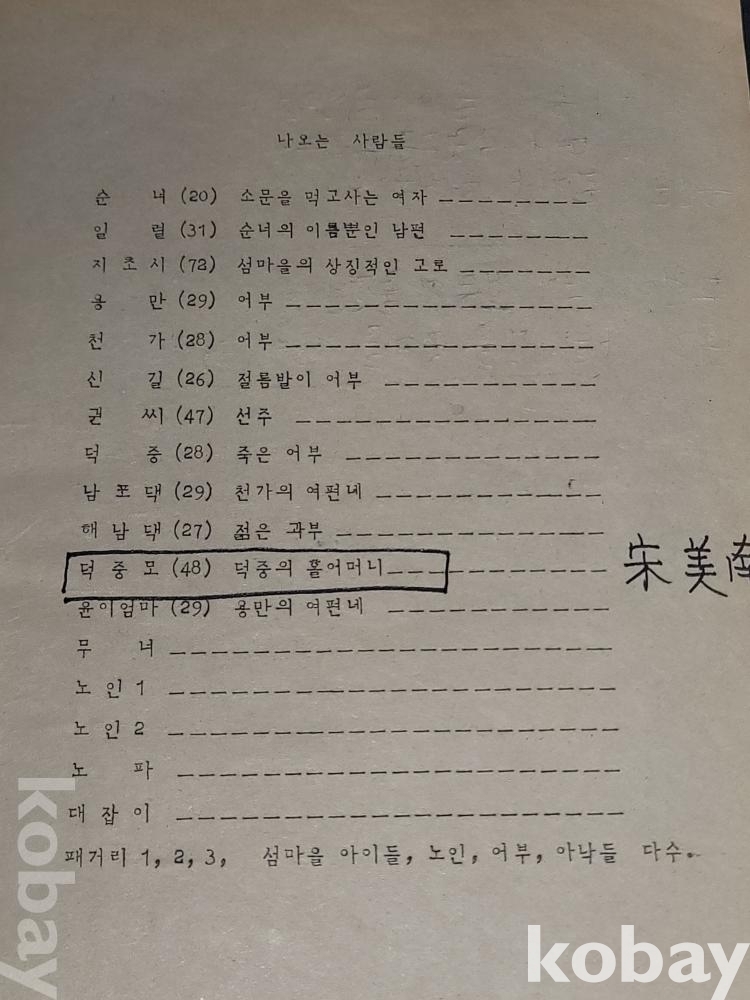 나오는 사람들
순 녀 (20) 소문을 먹고사는 여자 ________
일 럴 (31) 순녀의 이름뿐인 남편 ________
지 초 시 (72) 섬마을의 상징적인 고로 _______
용 만 (29) 어부 ________________
천 가 (28) 어부 ________________
신 길 (26) 절름발이 어부 ___________
권 씨 (47) 선주 ________________
덕 중 (28) 죽은 어부 _____________
남 포 댁 (29) 천가의 여편네 ___________
해 남 댁 (27) 젊은 과부 _____________
덕 중 모 (48) 덕중의 홀어머니 ___________ 宋美南
윤이엄마 (29) 용만의 여편네 ___________
무 녀 ______________________
노 인 1 ______________________
노 인 2 ______________________
노 파 ______________________
대 잡 이 ______________________
패거리 1, 2, 3, 섬마을 아이들, 노인, 어부, 아낙들 다수.
kobay
kobay